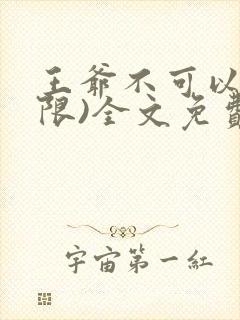 王爺不可以
限)全文免費
宇宙第一紅